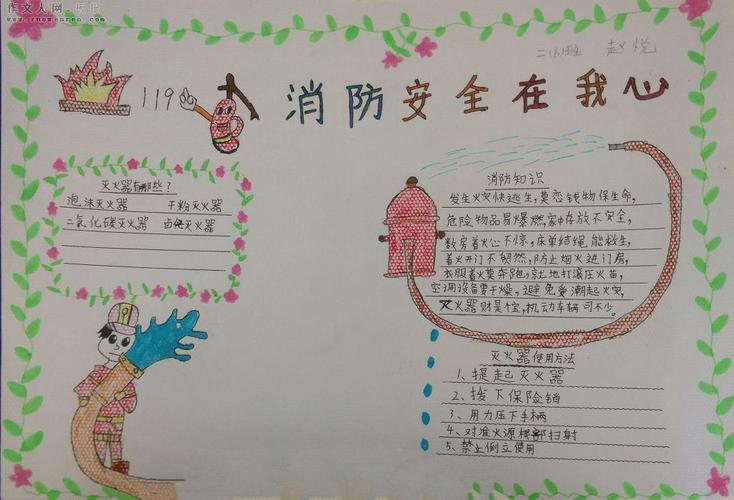 作文人网
www.zuowenren.com
二(6)班 赵悦
119
消防安全在我心
灭火器有哪些?
泡沫灭火器 干粉灭火器
二氧化碳灭火器 卤代灭火器
消防知识
发生火灾快逃生,莫恋钱物保生命,
危险物品易爆燃,家中存放不安全,
数房着火心不惊,床单结绳,能救生,
着火开门不贸然,防止烟火进门房,
衣服着火莫奔跑,就地打滚压火苗,
空调设备要干燥,避免受潮起火灾,
灭火器财是宝,机动车辆可不少。
灭火器使用方法
1、提起灭火器
2、拔下保险销
3、用力压下手柄
4、对准火源根部扫射
5、禁止倒立使用